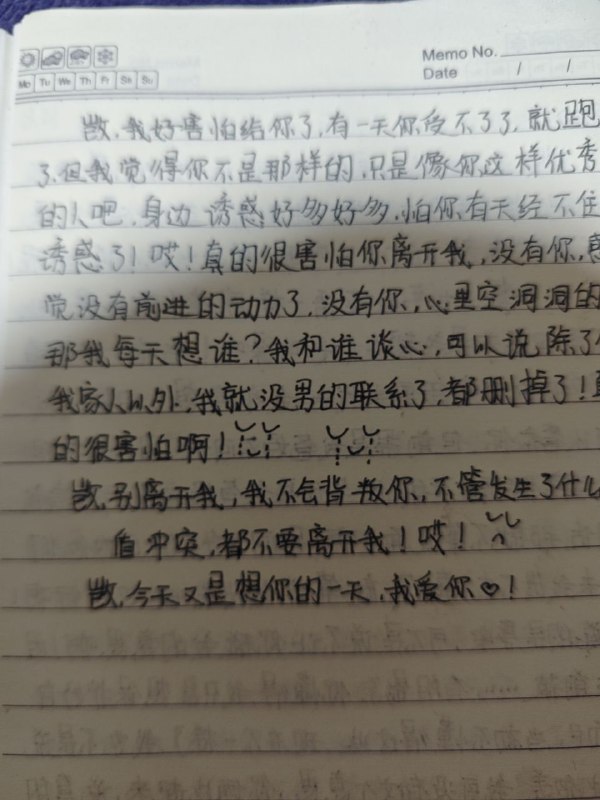 Memo No.
Mo Tu We Th Fr Sa Su
Date / /
凯，我好害怕给你了，有一天你受不了了，就跑
了，但我觉得你不是那样的，只是像你这样优秀
的人吧，身边诱惑好多好多，怕你有天经不住
诱惑了！哎！真的很害怕你离开我，没有你，感
觉没有前进的动力了，没有你，心里空洞洞的
那我每天想谁？我和谁谈心，可以说除了
我家人以外，我就没男的联系了，都删掉了！真
的很害怕啊！
凯，别离开我，我不会背叛你，不管发生了什么
冲突，都不要离开我！哎！
凯，今天又是想你的一天，我爱你♡！